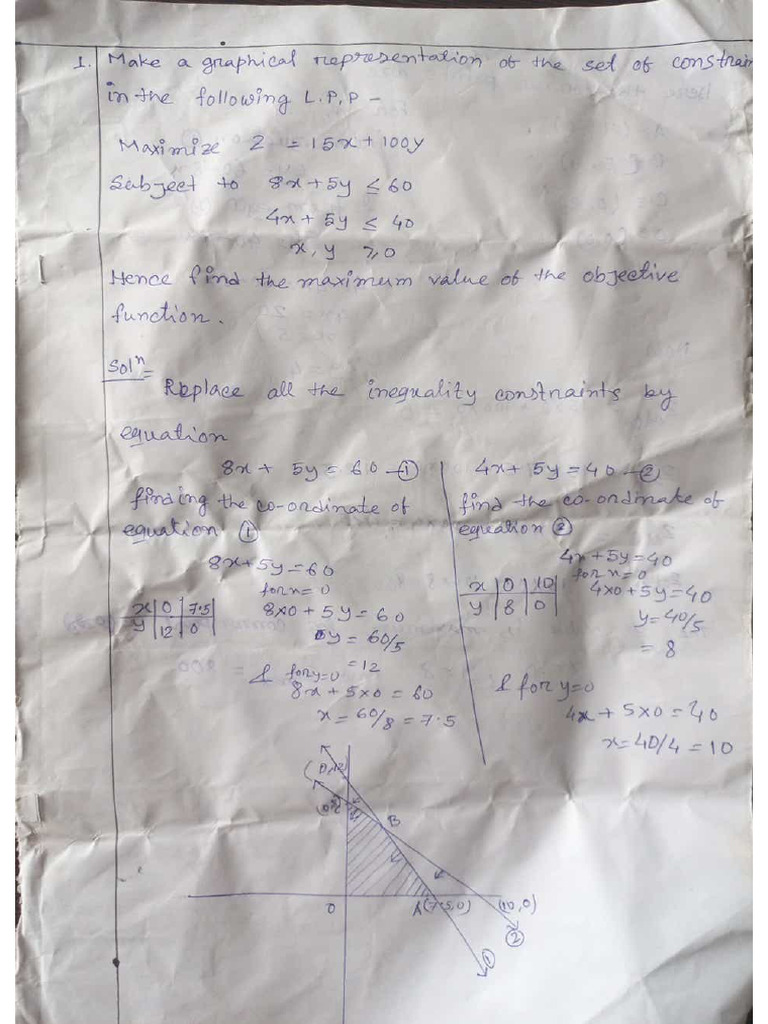 1. Make a graphical representation of the set of constrain
in the following L.P.P -
Maximize Z = 15x + 100y
Subject to 8x + 5y ≤ 60
4x + 5y ≤ 40
x, y ≥ 0
Hence find the maximum value of the objective
function.
Solⁿ=
Replace all the inequality constraints by
equation
8x + 5y = 60 —①
finding the co-ordinate of
equation ①
8x+5y=60
for x = 0
x | 0 | 7.5
y | 12 | 0
8x0 + 5y = 60
5y = 60/5
= 12
& for y=0
8x + 5x0 = 60
x = 60/8 = 7.5
4x + 5y = 40 —②
find the co-ordinate of
equation ②
4x + 5y = 40
for x = 0
x | 0 | 10
y | 8 | 0
4x0 + 5y = 40
y = 40/5
= 8
& for y=0
4x + 5x0 = 40
x = 40/4 = 10
(0,12)
B
O
A(7.5,0)
(10,0)
①
②